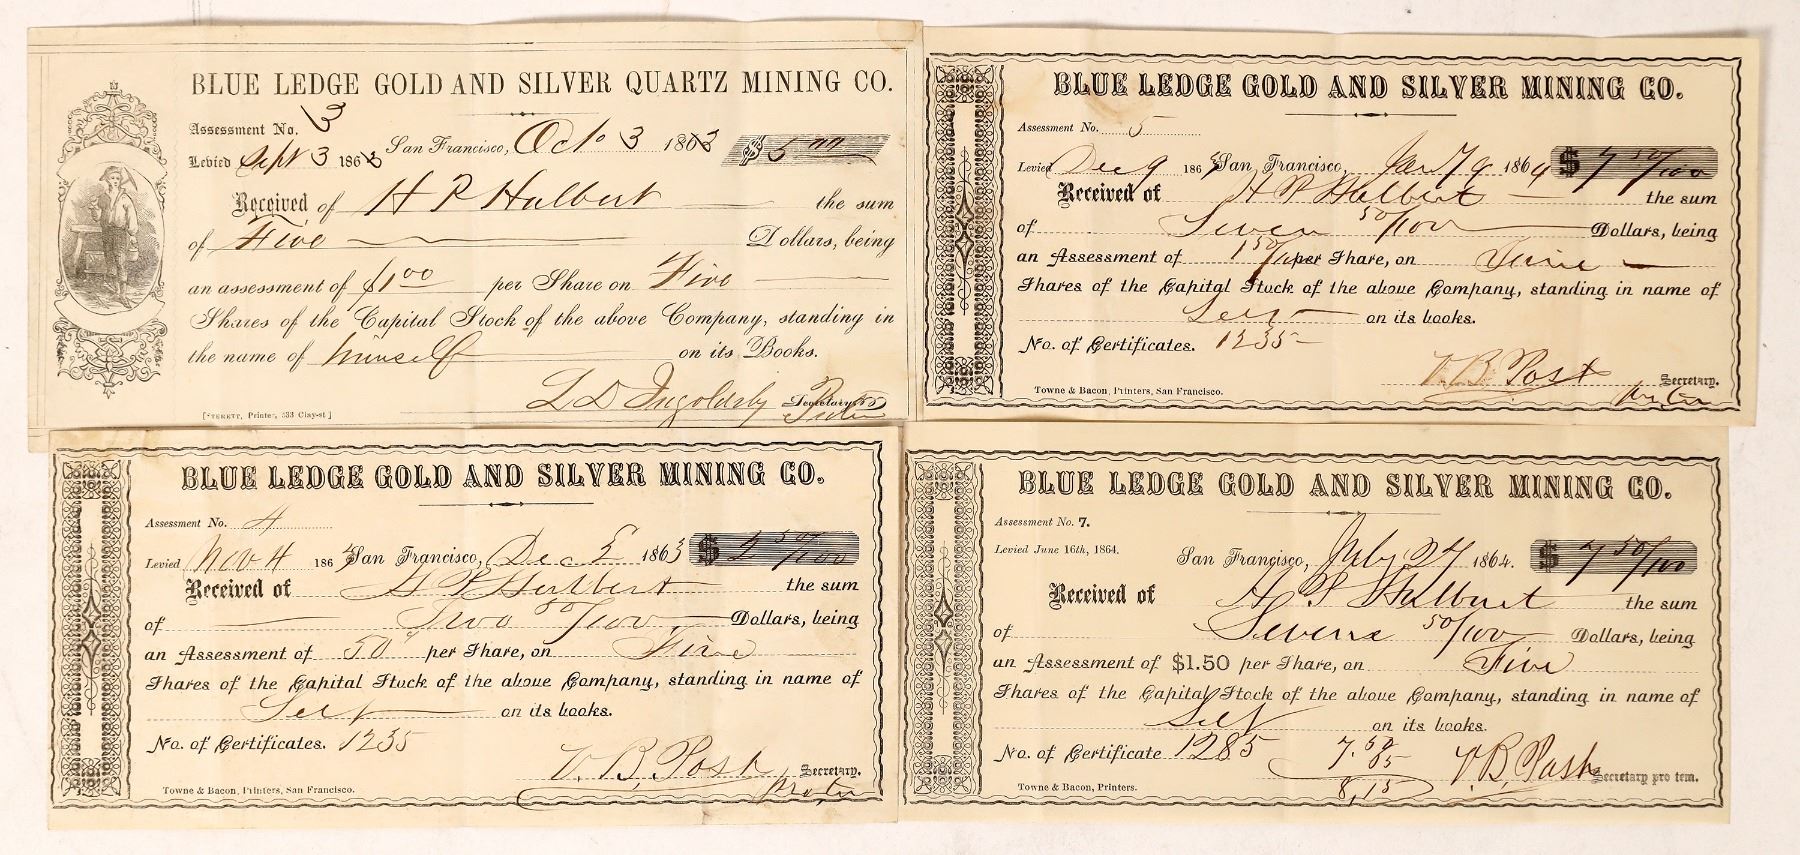 BLUE LEDGE GOLD AND SILVER QUARTZ MINING CO.
Assessment No. 3
Levied Sept 3 1863 San Francisco, Octo 3 1863 $ 5.00
Received of H P Hulbert the sum
of Five Dollars, being
an assessment of $1.00 per Share on Five
Shares of the Capital Stock of the above Company, standing in
the name of himself on its Books.
L D Ingoldsby Secretary
[STERETT, Printer, 533 Clay-st]
BLUE LEDGE GOLD AND SILVER MINING CO.
Assessment No. 5
Levied Dec 9 1863 San Francisco, Jany 9 1864 $ 7 50/100
Received of H P Hulbert the sum
of Seven 50/100 Dollars, being
an Assessment of 1 50/100 per Share, on Five
Shares of the Capital Stock of the above Company, standing in name of
Self on its books.
No. of Certificates. 1235
V. B. Post Secretary.
pro tem
Towne & Bacon, Printers, San Francisco.
BLUE LEDGE GOLD AND SILVER MINING CO.
Assessment No. 4
Levied Nov 4 1863 San Francisco, Dec 5 1863 $ 2 50/100
Received of H P Hulbert the sum
of Two 50/100 Dollars, being
an Assessment of 50 per Share, on Five
Shares of the Capital Stock of the above Company, standing in name of
Self on its books.
No. of Certificates. 1235
V. B. Post Secretary.
pro tem
Towne & Bacon, Printers, San Francisco.
BLUE LEDGE GOLD AND SILVER MINING CO.
Assessment No. 7.
Levied June 16th, 1864. San Francisco, July 27 1864. $ 7 50/100
Received of H P Hulbert the sum
of Seven 50/100 Dollars, being
an Assessment of $1.50 per Share, on Five
Shares of the Capital Stock of the above Company, standing in name of
Self on its books.
No. of Certificate 1285 7.50
V. B. Post Secretary pro tem.
8.15
Towne & Bacon, Printers.